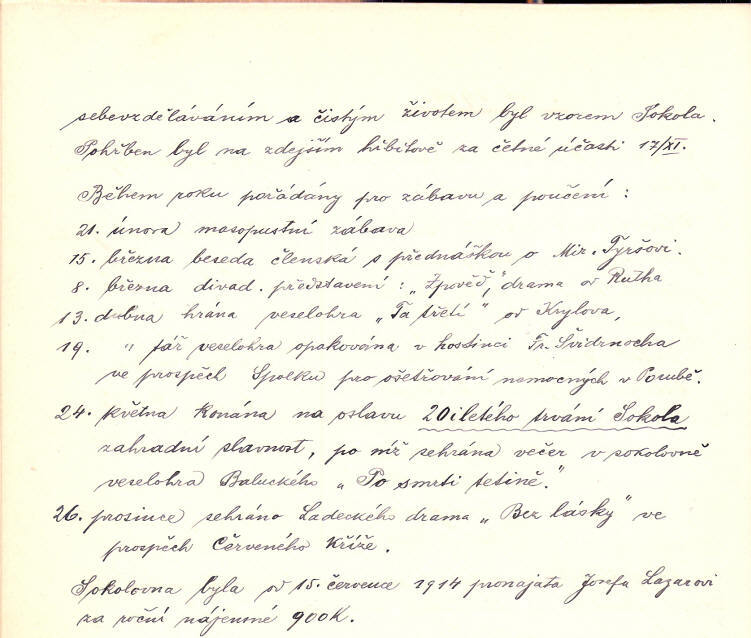 sebevzděláváním a čistým životem byl vzorem Sokola.
Pohřben byl na zdejším hřbitově za četné účasti 17/XI.
Během roku pořádány pro zábavu a poučení:
21. února masopustní zábava
15. března beseda členská s přednáškou o Mir. Tyršovi.
8. března divad. představení: „Zpověď," drama od Rutha
13. dubna hrána veselohra „Ta třetí" od Krylova,
19. " táž veselohra opakována v hostinci Fr. Švidrnocha
ve prospěch Spolku pro ošetřování nemocných v Porubě.
24. května konána na oslavu 20iletého trvání Sokola
zahradní slavnost, po níž sehrána večer v sokolovně
veselohra Baluckého „Po smrti tetině."
26. prosince sehráno Ladeckého drama „Bez lásky" ve
prospěch Červeného Kříže.
Sokolovna byla od 15. července 1914 pronajata Josefu Lazarovi
za roční nájemné 900K.